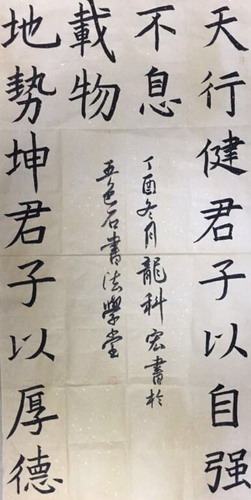 天行健君子以自强
不息
地勢坤君子以厚德
載物
丁酉冬月龍科宏書於
五色石書法學堂